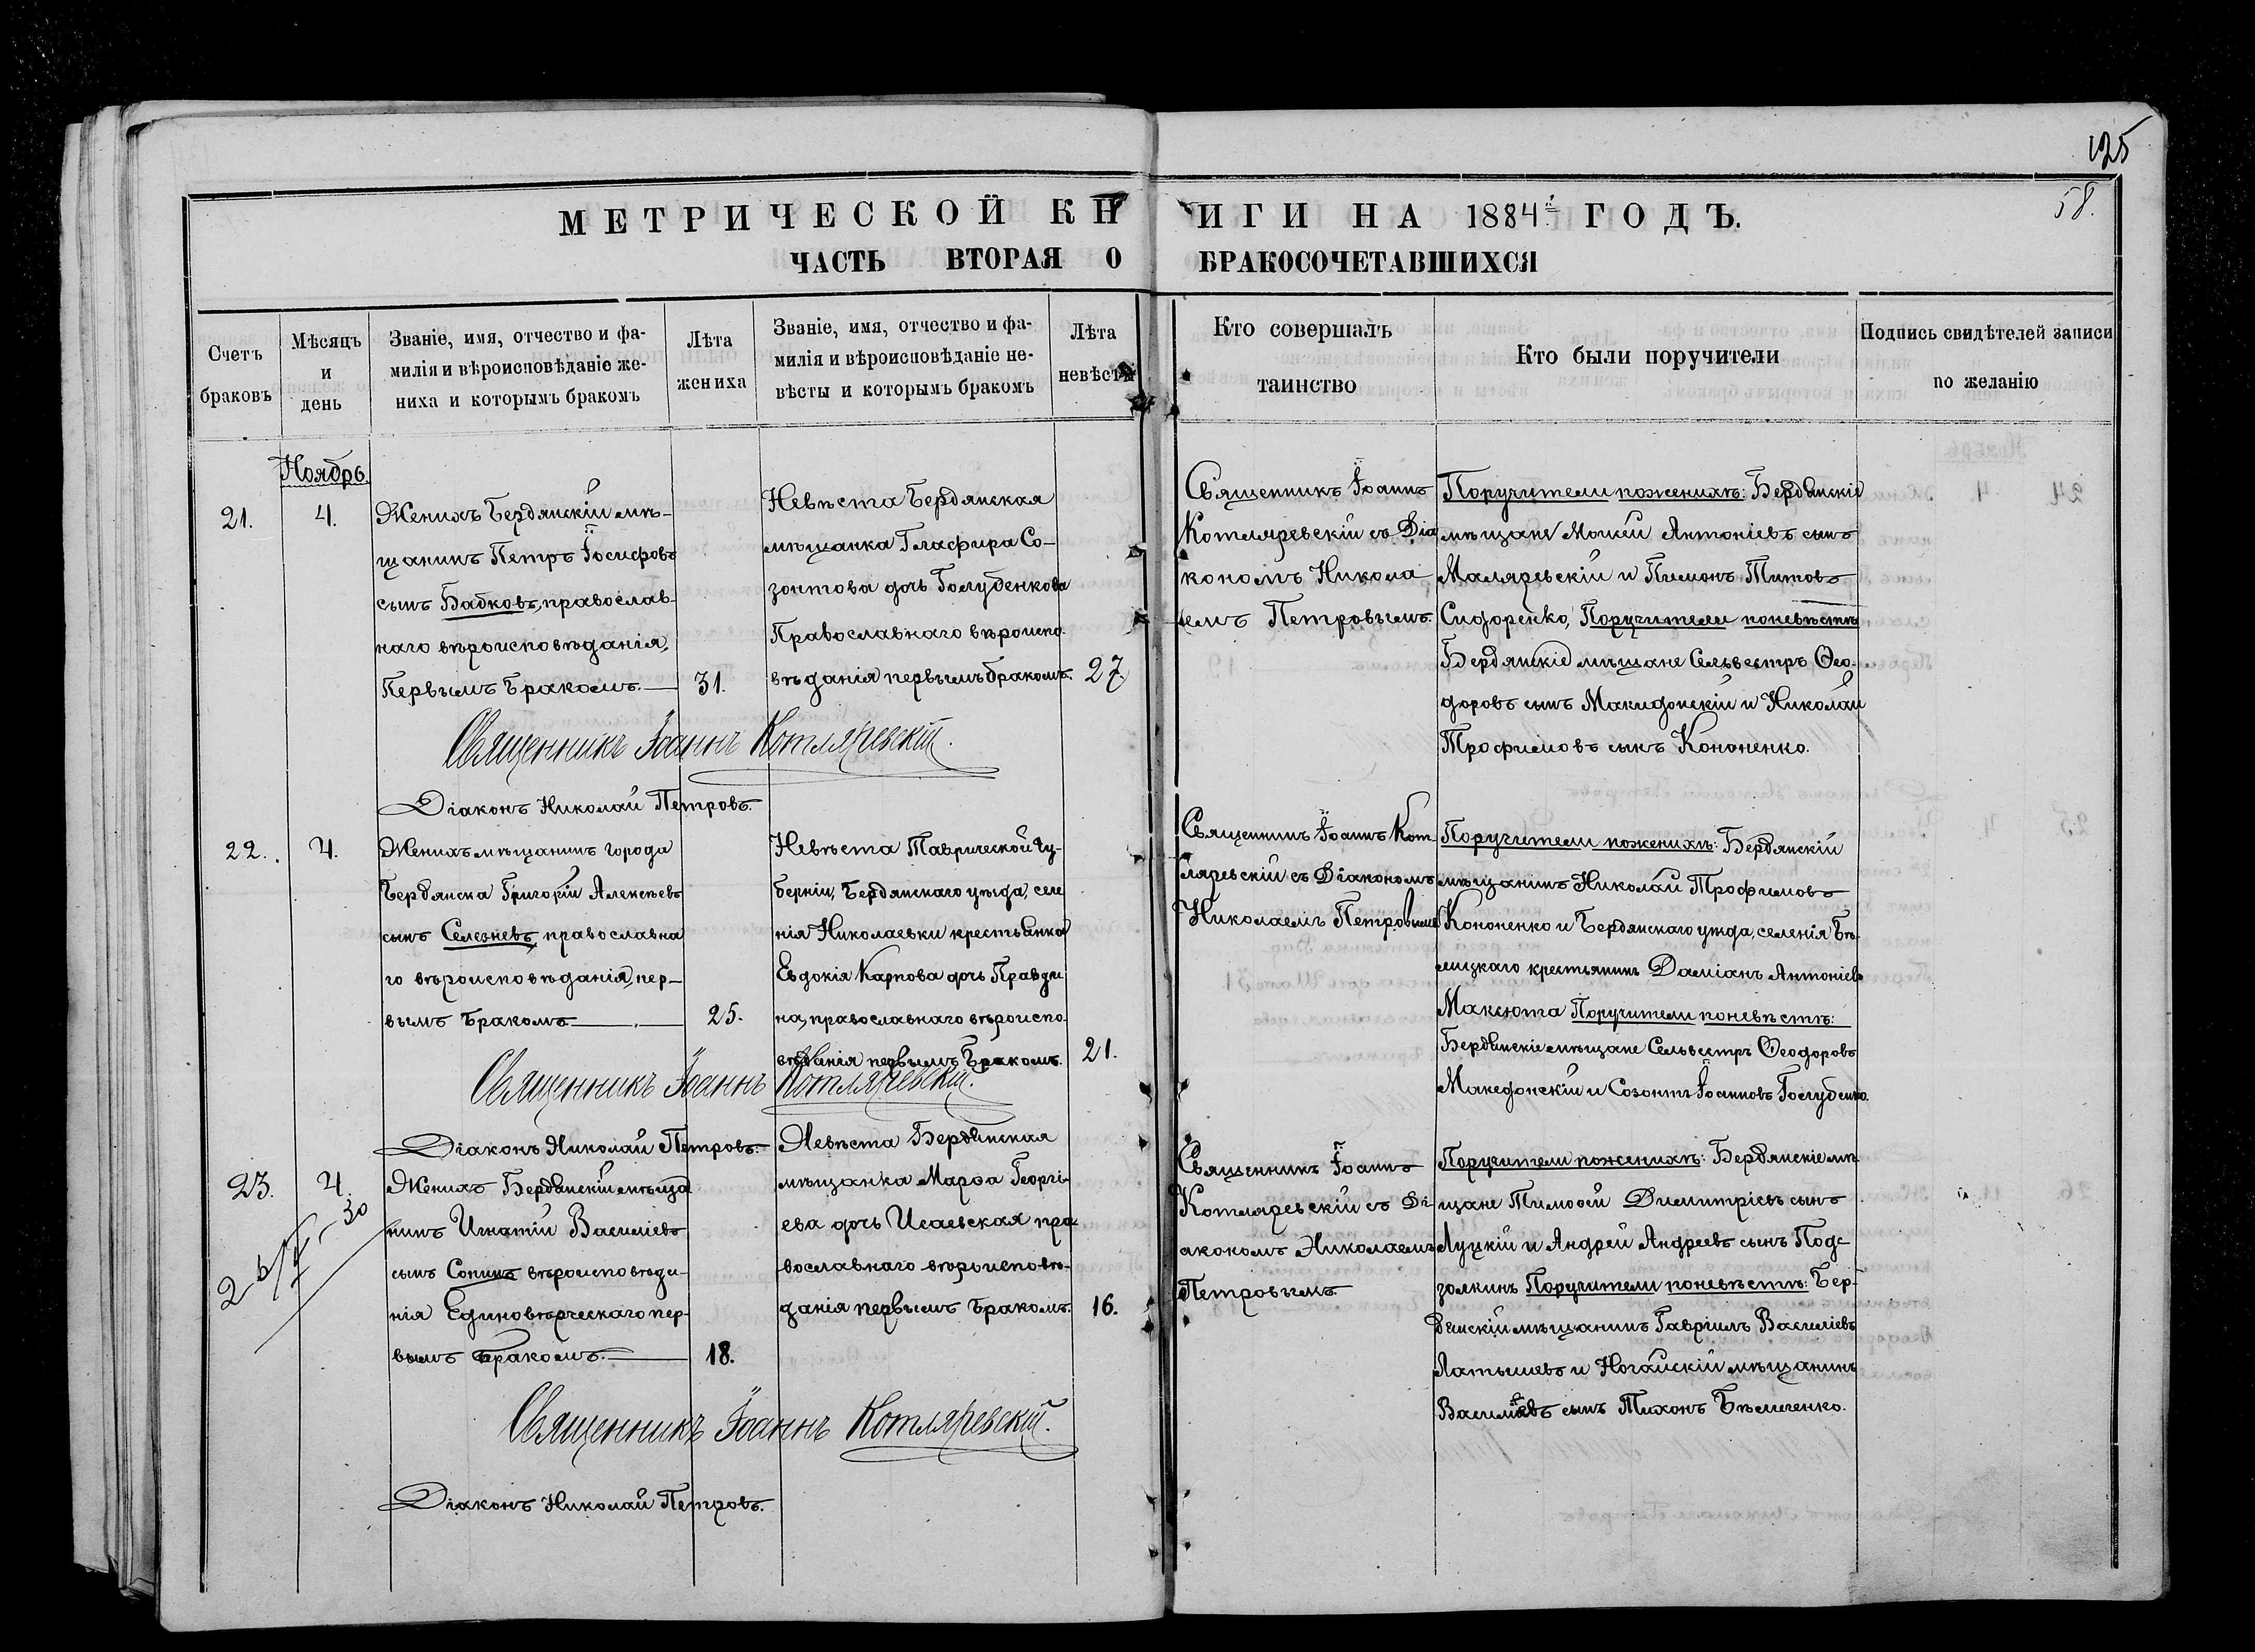 125
58.
МЕТРИЧЕСКОЙ КНИГИ НА 1884й ГОДЪ.
ЧАСТЬ ВТОРАЯ О БРАКОСОЧЕТАВШИХСЯ
Счетъ
браковъ
Мѣсяцъ
и
день
Званіе, имя, отчество и фа-
милія и вѣроисповѣданіе же-
ниха и которымъ бракомъ
Лѣта
жениха
Званіе, имя, отчество и фа-
милія и вѣроисповѣданіе не-
вѣсты и которымъ бракомъ
Лѣта
невѣсты
Кто совершалъ
таинство
Кто были поручители
Подпись свидѣтелей записи
по желанію
Ноябрь.
21.
4.
Женихъ Бердянскій мѣ-
щанинъ Петръ Іосифовъ
сынъ Бабковъ, православ-
наго вѣроисповѣданія,
Первымъ бракомъ.
31.
Невѣста Бердянская
мѣщанка Глафира Со-
зонтова дочь Голубенкова
Православнаго вѣроиспо-
вѣданія первымъ бракомъ.
27.
Священникъ Іоаннъ
Котляревскій съ Діа
кономъ Никола
емъ Петровымъ.
Поручители пожениxѣ: Бердянскіе
мѣщане Моисей Антоніевъ сынъ
Маляревскій и Пимонъ Титовъ
Сидоренко, Поручители поневѣстѣ
Бердянскіе мѣщане Сельвестръ Ѳео-
доровъ сынъ Макидонскій и Николай
Трофимовъ сынъ Кононенко.
Священникъ Іоаннъ Котляревскій.
Діаконъ Николай Петровъ.
22.
4.
Женихъ мѣщанинъ города
Бердянска Григорій Алексѣевъ
сынъ Селезневъ, православна
го вѣроисповѣданія, пер-
вымъ бракомъ
25.
Невѣста Таврической Гу-
берніи, Бердянскаго уѣзда, селе
нія Николаевки крестьянка
Евдокія Карпова дочь Правди
на, православнаго вѣроиспо-
вѣданія первымъ бракомъ.
21.
Священникъ Іоаннъ Кот-
ляревскій съ Діакономъ
Николаемъ Петровымъ
Поручители поженихѣ: Бердянскій
мѣщанинъ Николай Трофимовъ
Кононенко и Бердянскаго уѣзда, селенія Бѣ-
лицкаго крестьянинъ Даміанъ Антоніевъ
Максюта Поручители поневѣстѣ:
Бердянскіе мѣщане Сельвестръ Ѳеодоровъ
Македонскій и Созонтъ Іоанновъ Голубенко.
Священникъ Іоаннъ Котляревскій.
Діаконъ Николай Петровъ.
23.
4.
Женихъ Бердянскій мѣща
нинъ Игнатій Василіевъ
сынъ Сопинъ вѣроисповѣда-
нія Единовѣрческаго пер-
вымъ бракомъ.
18.
Невѣста Бердянская
мѣщанка Марѳа Георгі-
ева дочь Исаевская пра-
вославнаго вѣроисповѣ-
данія первымъ бракомъ.
16.
Священникъ Іоаннъ
Котляревскій съ Ді-
акономъ Николаемъ
Петровымъ
Поручители поженихѣ: Бердянскіе мѣ
щане Тимоѳей Димитріевъ сынъ
Луцкій и Андрей Андреевъ сынъ Подс
золкинъ Поручители поневѣстѣ: Бер-
дянскій мѣщанинъ Гавріилъ Василіевъ
Латышевъ и Ногайскій мѣщанинъ
Василіевъ сынъ Тихонъ Бѣличенко.
Священникъ Іоаннъ Котляревскій.
Діаконъ Николай Петровъ.